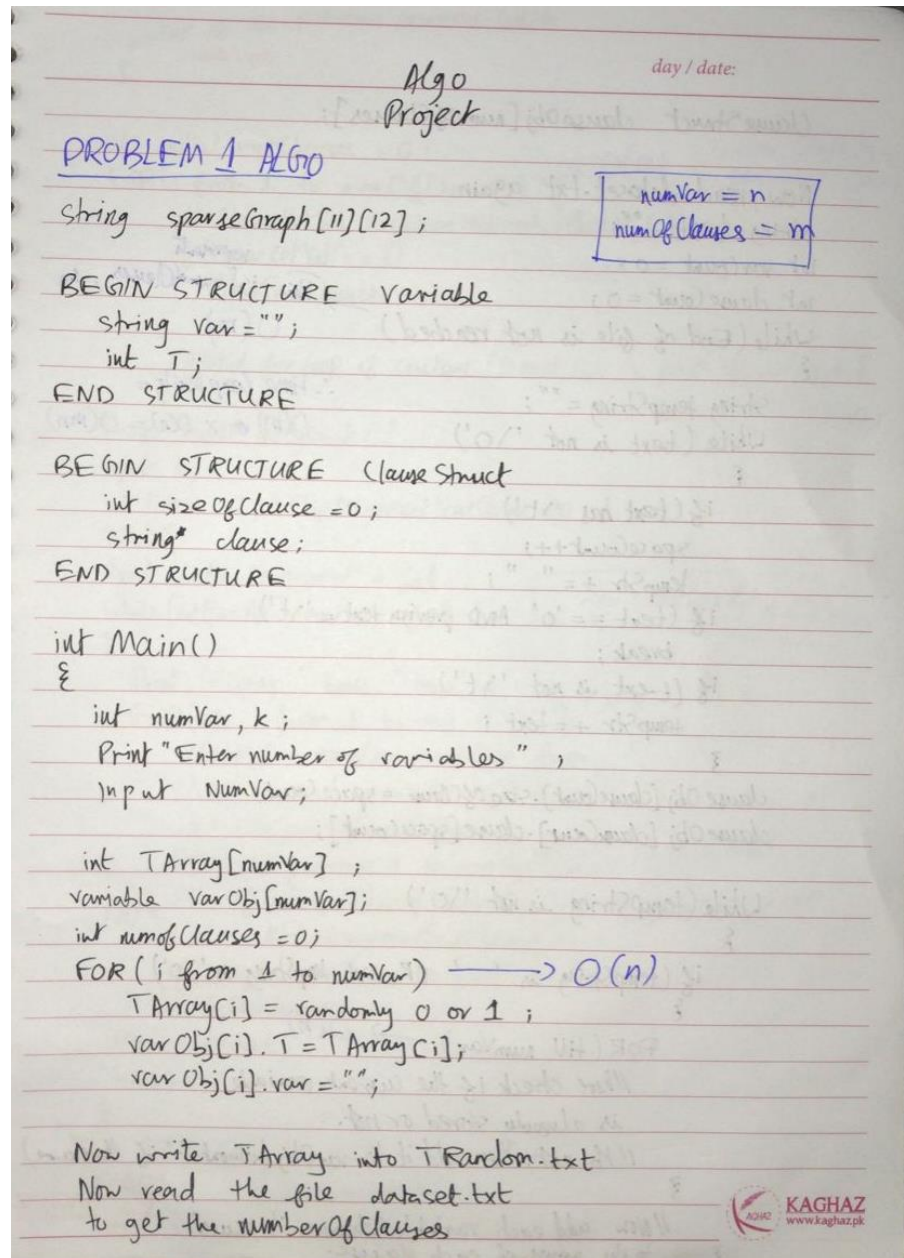 day / date:
Algo
Project
PROBLEM 1 ALGO
numVar = n
numOfClauses = m
string sparseGraph[11][12];
BEGIN STRUCTURE variable
string var = "";
int T;
END STRUCTURE
BEGIN STRUCTURE ClauseStruct
int sizeOfClause = 0;
string* clause;
END STRUCTURE
int Main()
{
int numVar, k;
Print "Enter number of variables" ;
Input NumVar;
int TArray[numVar] ;
variable varObj[numVar];
int numofClauses = 0;
FOR (i from 1 to numVar) → O(n)
TArray[i] = randomly 0 or 1 ;
varObj[i].T = TArray[i];
varObj[i].var = "";
Now write TArray into TRandom.txt
Now read the file dataset.txt
to get the numberOfClauses
KAGHAZ
www.kaghaz.pk